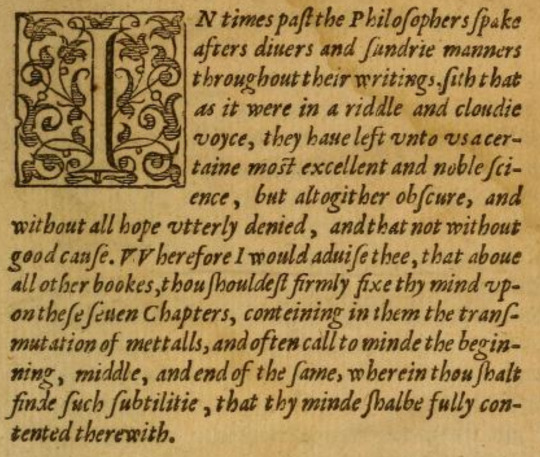 IN times past the Philosophers spake
afters diuers and sundrie manners
throughout their writings, sith that
as it were in a riddle and cloudie
voyce, they haue left vnto vs a cer-
taine most excellent and noble sci-
ence, but altogither obscure, and
without all hope vtterly denied, and that not without
good cause. VVherefore I would aduise thee, that aboue
all other bookes, thou shouldest firmly fixe thy mind vp-
on these seuen Chapters, conteining in them the trans-
mutation of mettalls, and often call to minde the begin-
ning, middle, and end of the same, wherein thou shalt
finde such subtilitie, that thy minde shalbe fully con-
tented therewith.